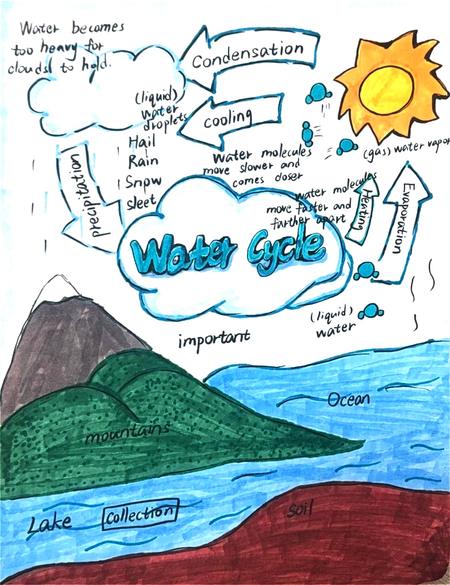 Water becomes
too heavy for
clouds to hold.
Condensation
(liquid)
water
droplets
cooling
Hail
Rain
Snow
sleet
precipitation
Water molecules
move slower and
comes closer
(gas) water vapor
water molecules
move faster and
farther apart
Heating
Evaporation
Water Cycle
(liquid)
water
important
Ocean
mountains
Lake
Collection
soil